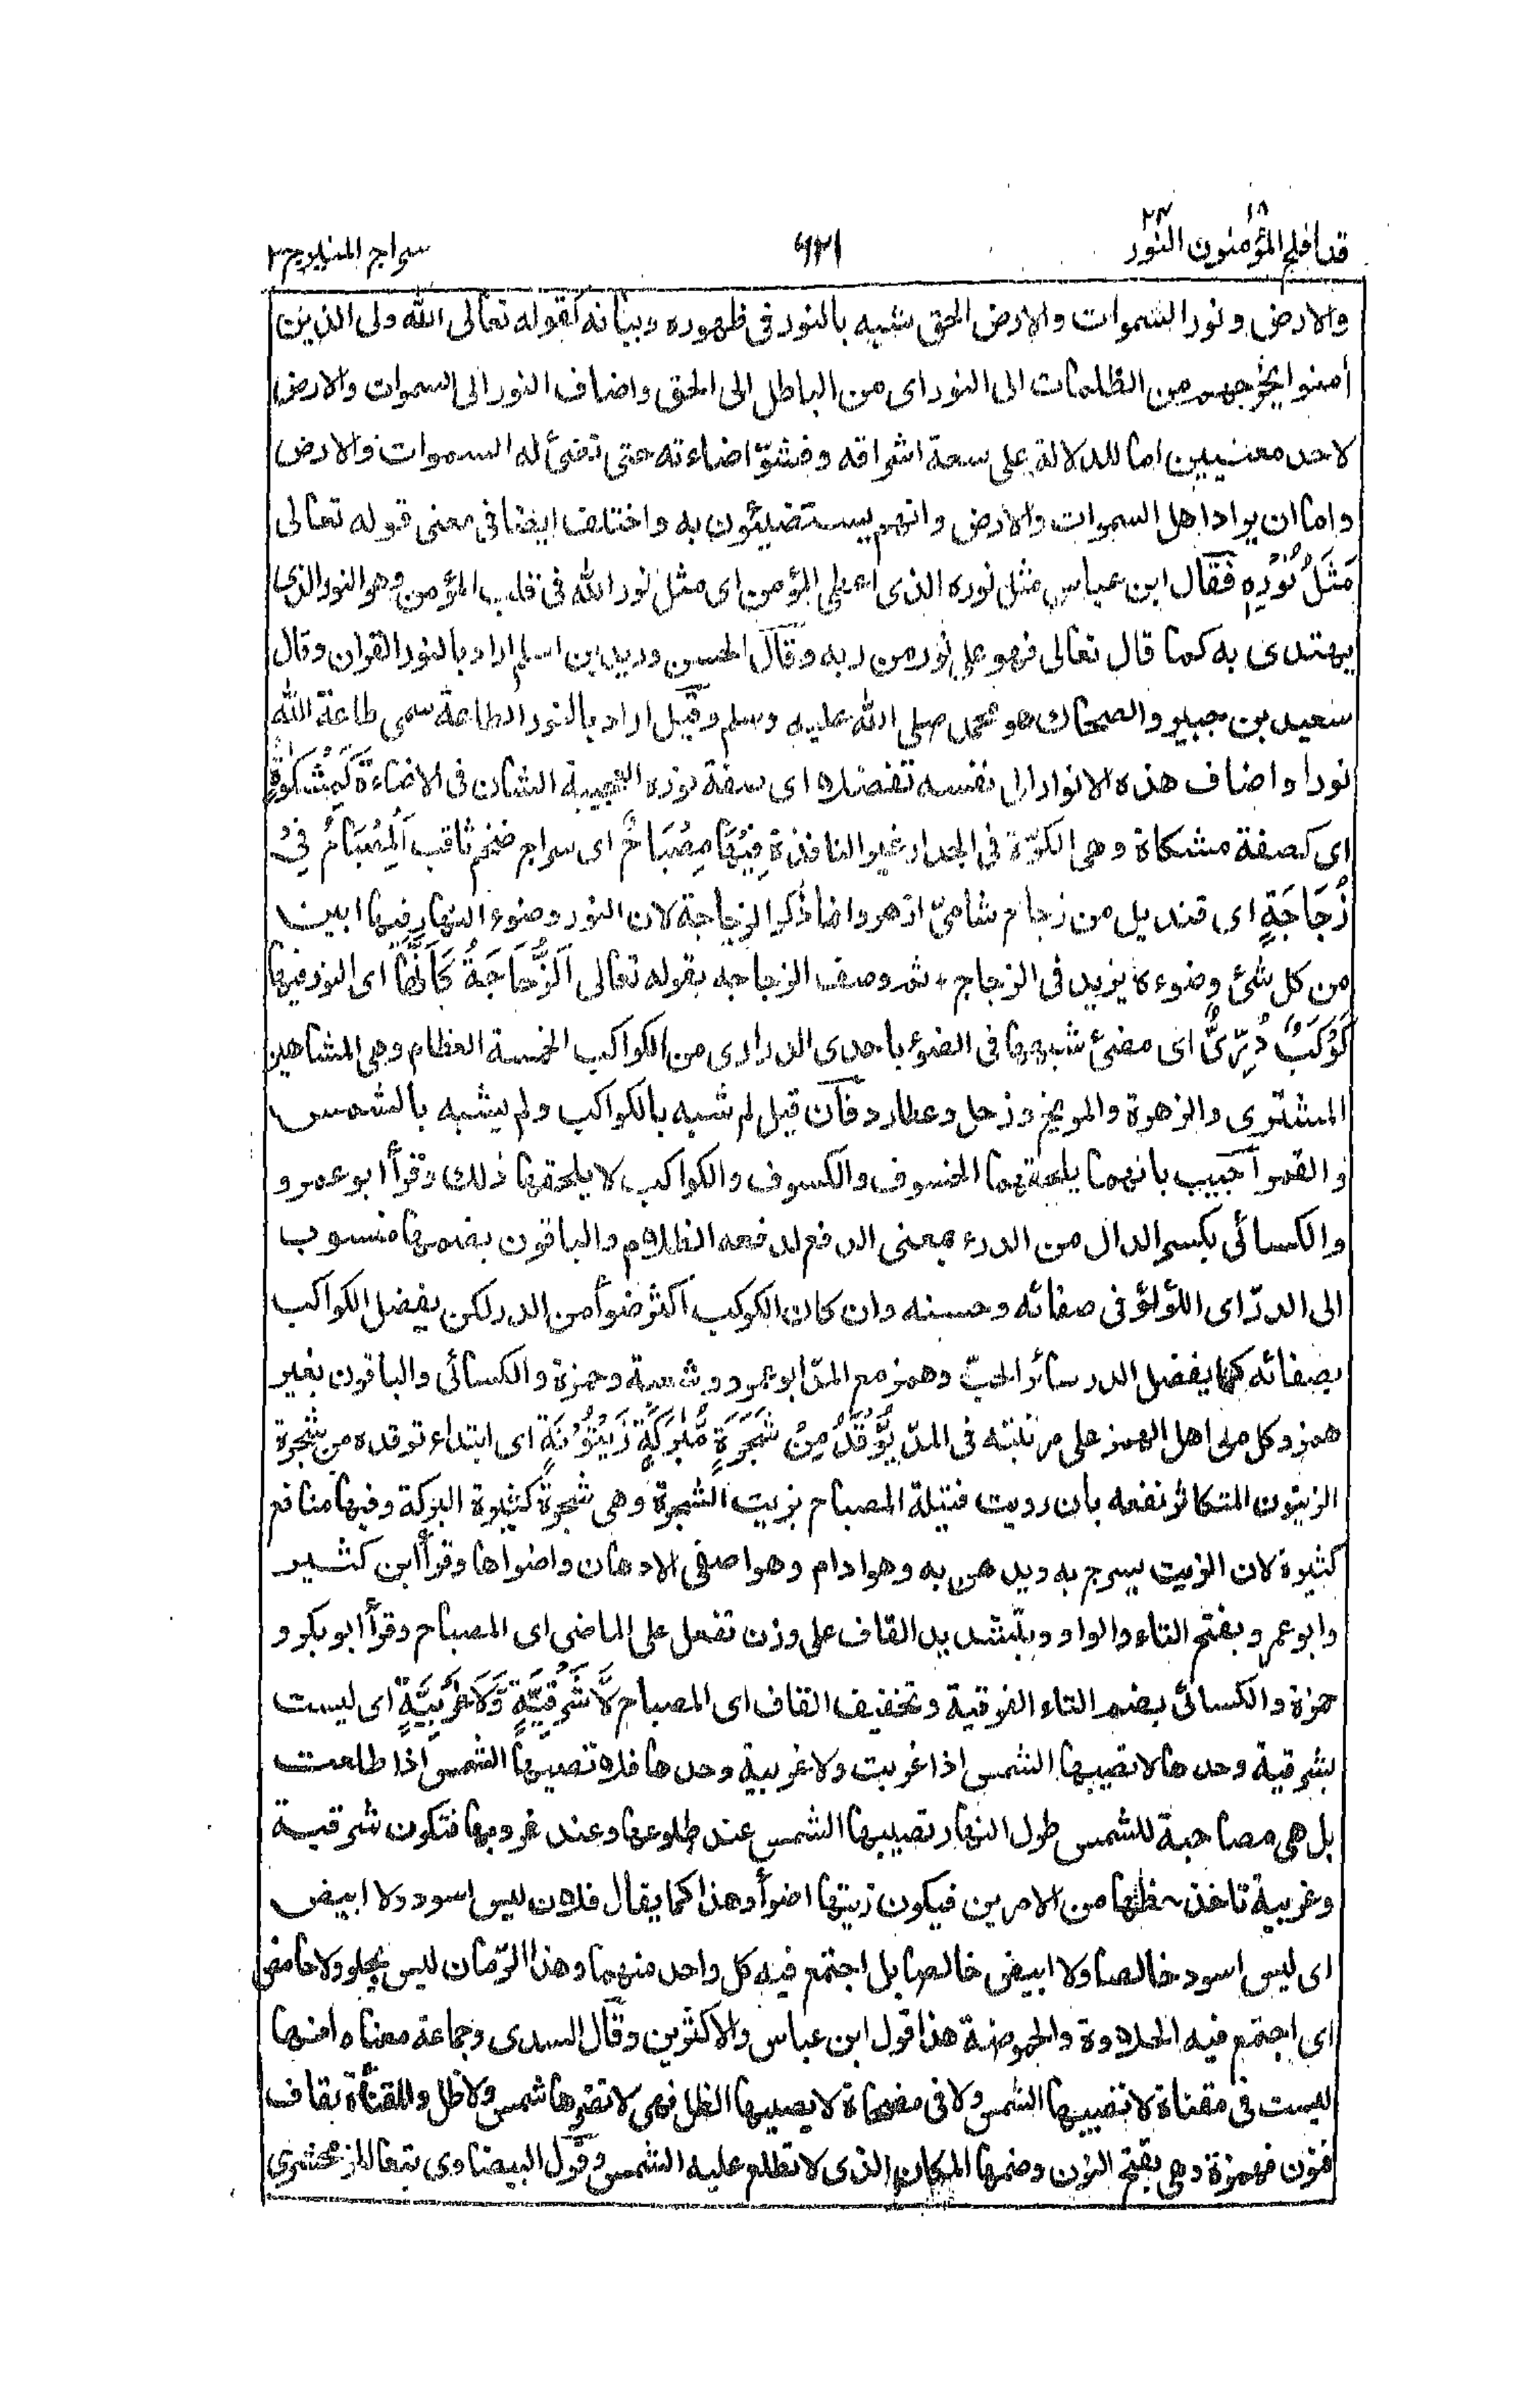 قد افلح المؤمنون ١٨ النور ٢٤
٦٢١
سراج المنير ج ٢
والارض ونور السموات والارض الحق شبيه بالنور فى ظهوره وبيانه كقوله تعالى الله ولى الذين
اٰمنوا يخرجهم من الظلمات الى النور اى من الباطل الى الحق واضاف النور الى السموات والارض
لاحد معنيين اما للدلالة على سعة اشراقه وفشوّ اضاءته حتى تضئ له السموات والارض
واما ان يراد اهل السموات والارض وانهم يستضيئون به واختلف ايضا فى معنى قوله تعالى
مَثَلُ نُوْرِهٖ فقال ابن عباس مثل نوره الذى اعطى المؤمن اى مثل نور الله فى قلب المؤمن وهو النور الذى
يهتدى به كما قال تعالى فهو على نور من ربه وقال الحسن وزيد بن اسلم اراد بالنور القران وقال
سعيد بن جبير والضحاك هو محمد صلى الله عليه وسلم وقيل اراد بالنور الطاعة سمى طاعة الله
نورا واضاف هذه الانوار الى نفسه تفضلا اى صفة نوره العجيبة الشان فى الاضاءة كَمِشْكٰوةٍ
اى كصفة مشكاة وهى الكوّة فى الجدار غير النافذة فِيْهَا مِصْبَاحٌ اى سراج ضخم ثاقب اَلْمِصْبَاحُ فِىْ
زُجَاجَةٍ اى قنديل من زجاج شامىّ ازهر وانما ذكر الزجاجة لان النور وضوء النهار فيها ابين
من كل شئ وضوءه يزيد فى الزجاج ، ثم وصف الزجاجه بقوله تعالى اَلزُّجَاجَةُ كَاَنَّهَا اى النور فيها
كَوْكَبٌ دُرِّىٌّ اى مضئ شبهها فى الضوء باحدى الدرارى من الكواكب الخمسة العظام وهى المشاهير
المشترى والزهرة والمريخ وزحل وعطارد فان قيل لم شبه بالكواكب ولم يشبه بالشمس
والقمر اجيب بانهما يلحقهما الخسوف والكسوف والكواكب لا يلحقها ذلك وقرأ ابو عمرو
والكسائى بكسر الدال من الدرء بمعنى الدفع لدفعه الظلام والباقون بضمها منسوب
الى الدرّ اى اللؤلؤ فى صفائه وحسنه وان كان الكوكب اكثر ضوأ من الدر لكن يفضل الكواكب
بصفائه كما يفضل الدر سائر الحبّ وهمز مع المدّ ابو عمرو وشعبة وحمزة والكسائى والباقون بغير
همز وكل من اهل الهمز على مرتبته فى المدّ يُّوْقَدُ مِنْ شَجَرَةٍ مُّبٰرَكَةٍ زَيْتُوْنَةٍ اى ابتداء توقده من شجرة
الزيتون المتكاثر نفعه بان رويت فتيلة المصباح بزيت الشجرة وهى شجرة كثيرة البركة وفيها منافع
كثيرة لان الزيت يسرج به ويدهن به وهو ادام وهو اصفى الادهان واضواها وقرأ ابن كثير
وابو عمرو بفتح التاء والواو وبتشديد القاف على وزن تفعل على الماضى اى المصباح وقرأ ابو بكر و
حمزة والكسائى بضم التاء الفوقية وتخفيف القاف اى المصباح لَّا شَرْقِيَّةٍ وَّلَا غَرْبِيَّةٍ اى ليست
بشرقية وحدها لا تصيبها الشمس اذا غربت ولا غربية وحدها فلا تصيبها الشمس اذا طلعت
بل هى مصاحبة للشمس طول النهار تصيبها الشمس عند طلوعها وعند غروبها فتكون شرقية
وغربية تاخذ حظها من الامرين فيكون زيتها اضوأ وهذا كما يقال فلان ليس اسود ولا ابيض
اى ليس اسود خالصا ولا ابيض خالصا بل اجتمع فيه كل واحد منهما وهذا الرّمان ليس بحلو ولا حامض
اى اجتمع فيه الحلاوة والحموضة هذا قول ابن عباس والاكثرين وقال السدى وجماعة معناه انها
ليست فى مقناة لا تصيبها الشمس ولا فى مضحاة لا يصيبها الظل فهى لا تضرها شمس ولا ظل والمقنأة بقاف
فنون فهمزة وهى بفتح النون وضمها المكان الذى لا تطلع عليه الشمس وقول البيضاوى تبعا للزمخشرى